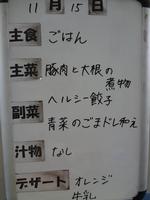 11月15日
主食 ごはん
主菜 豚肉と大根の
煮物
副菜 ヘルシー餃子
青菜のごまドレ和え
汁物 なし
デザート オレンジ
牛乳